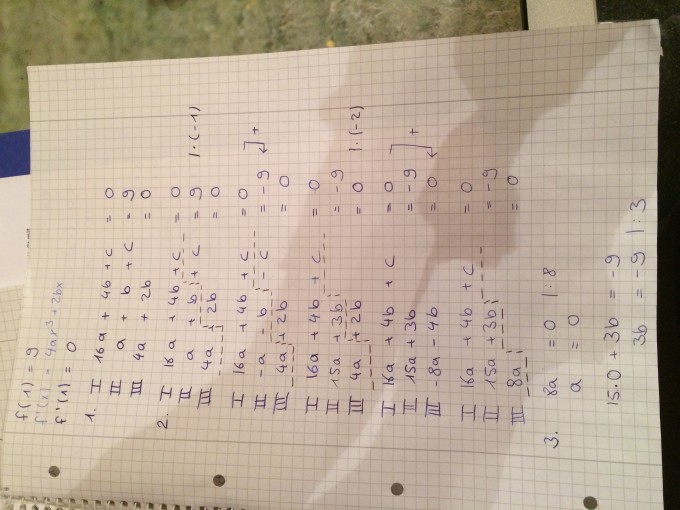 f(1) = 9
f'(x) = 4ax³ + 2bx
f'(1) = 0
1. I 16a + 4b + c = 0
II a + b + c = 9
III 4a + 2b = 0
2. I 16a + 4b + c = 0
II a + b + c = 9 | · (-1)
III 4a + 2b = 0
I 16a + 4b + c = 0
II -a - b - c = -9 +
III 4a + 2b = 0
I 16a + 4b + c = 0
II 15a + 3b = -9
III 4a + 2b = 0 | · (-2)
I 16a + 4b + c = 0
II 15a + 3b = -9
III -8a - 4b = 0 +
I 16a + 4b + c = 0
II 15a + 3b = -9
III 8a = 0
3. 8a = 0 | : 8
a = 0
15·0 + 3b = -9
3b = -9 | : 3